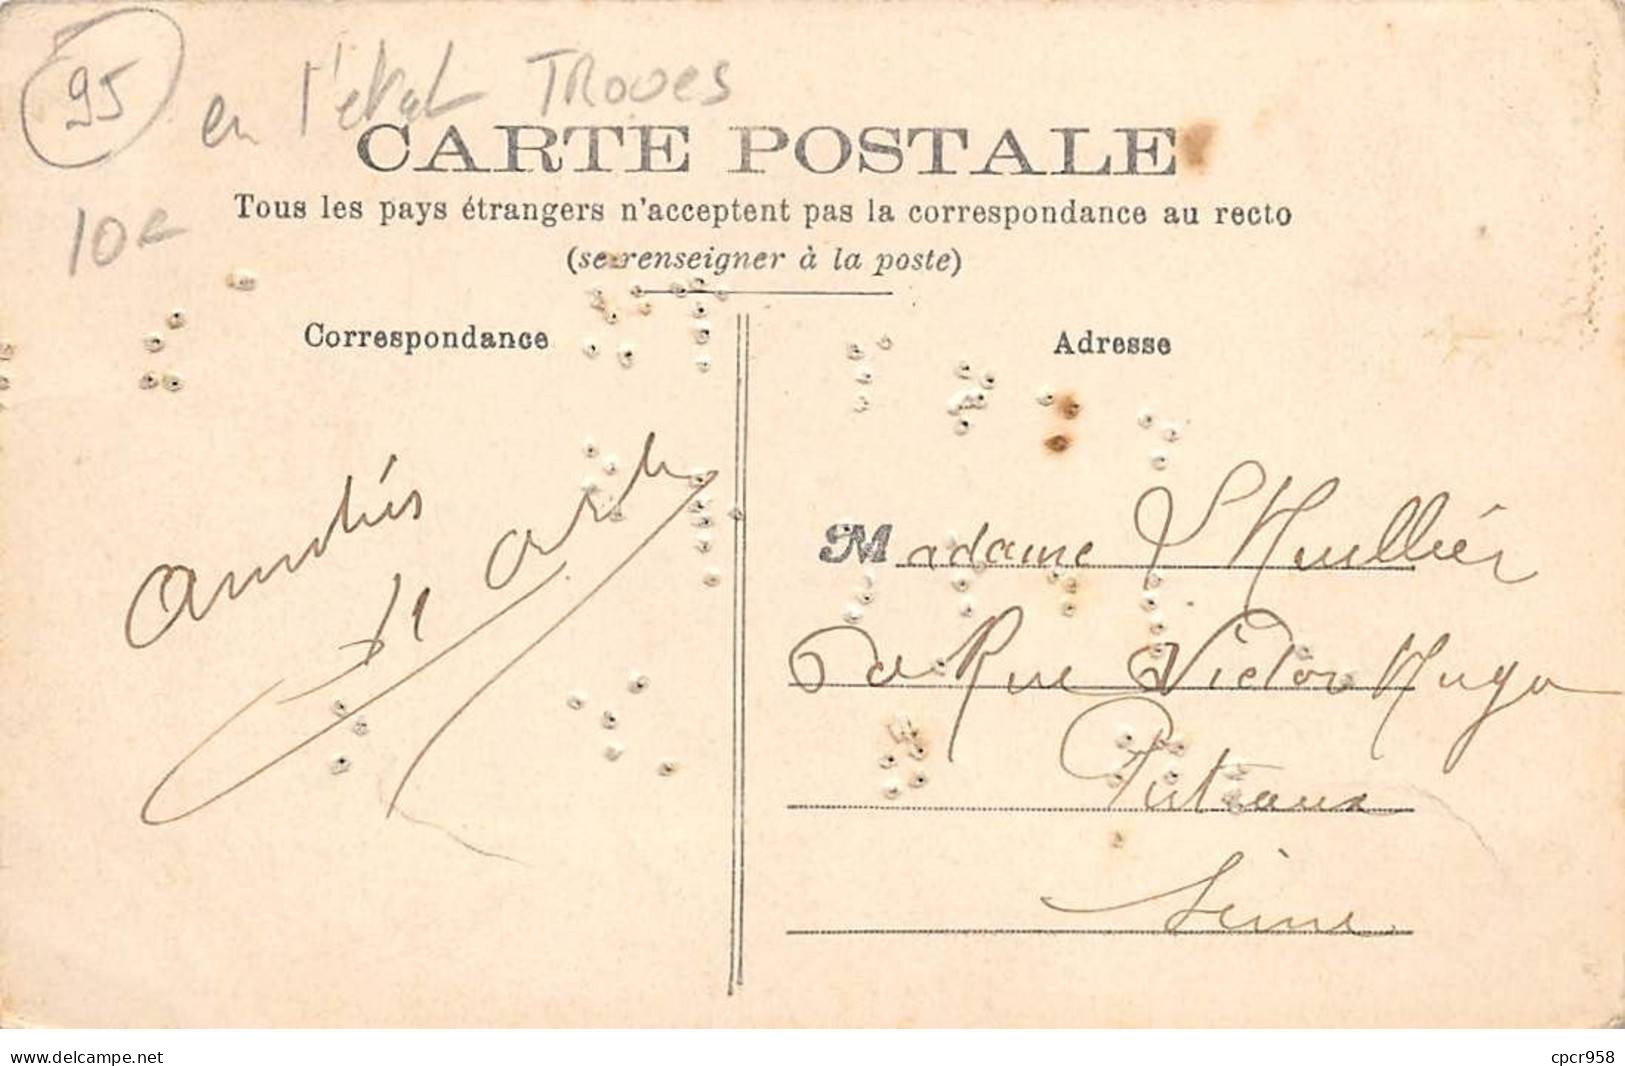 95
en l'état TROUES
CARTE POSTALE
10€
Tous les pays étrangers n'acceptent pas la correspondance au recto
(se renseigner à la poste)
Correspondance
Adresse
Amitiés
Madame L'Huillier
Rue Victor Hugo
Puteaux
Seine
www.delcampe.net
cpcr958